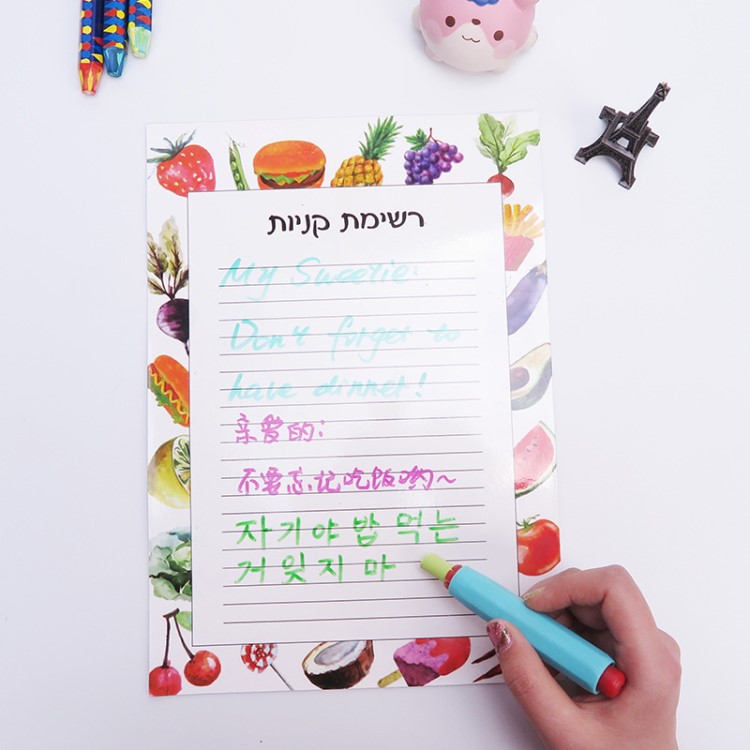 רשימת קניות
My Sweetie:
Don't forget to
have dinner!
亲爱的:
不要忘记吃饭哟~
자기야 밥 먹는
거 잊지 마